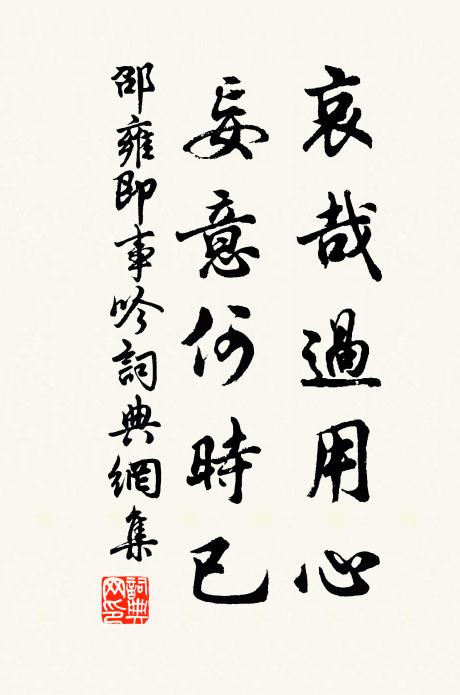 哀哉過用心
妄意何時已
邵雍即事吟詞典網集
詞典网印